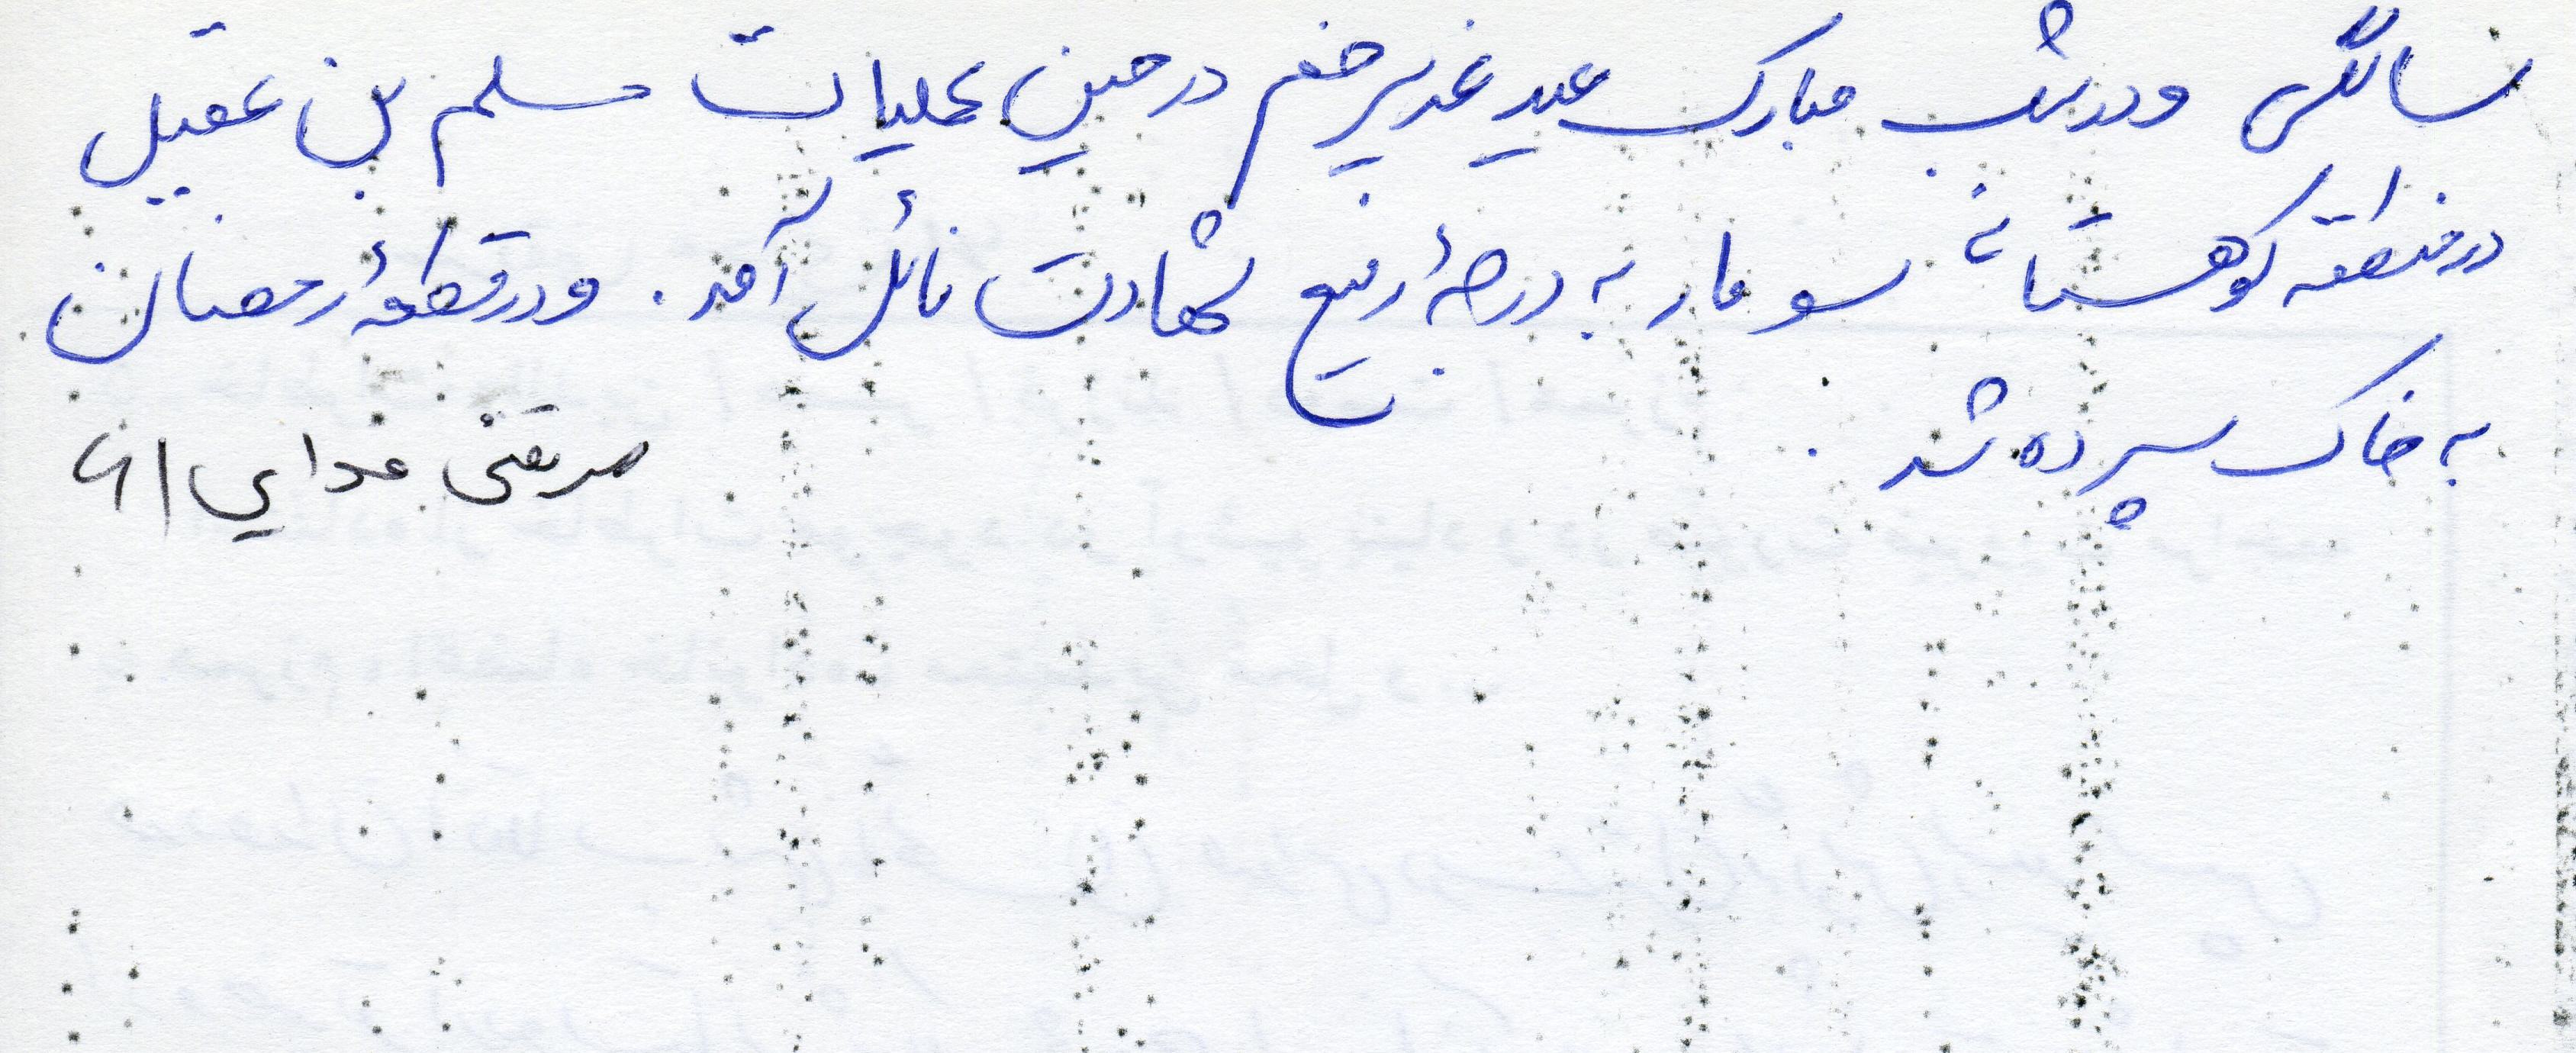 سالگی ودر شب مبارک عید غدیر خم در حین عملیات مسلم بن عقیل
در منطقه کوهستانی سومار به درجهٔ رفیع شهادت نائل آمد. ودر قطعهٔ رمضان
به خاک سپرده شد.
مرتضی عدایی ۶۱